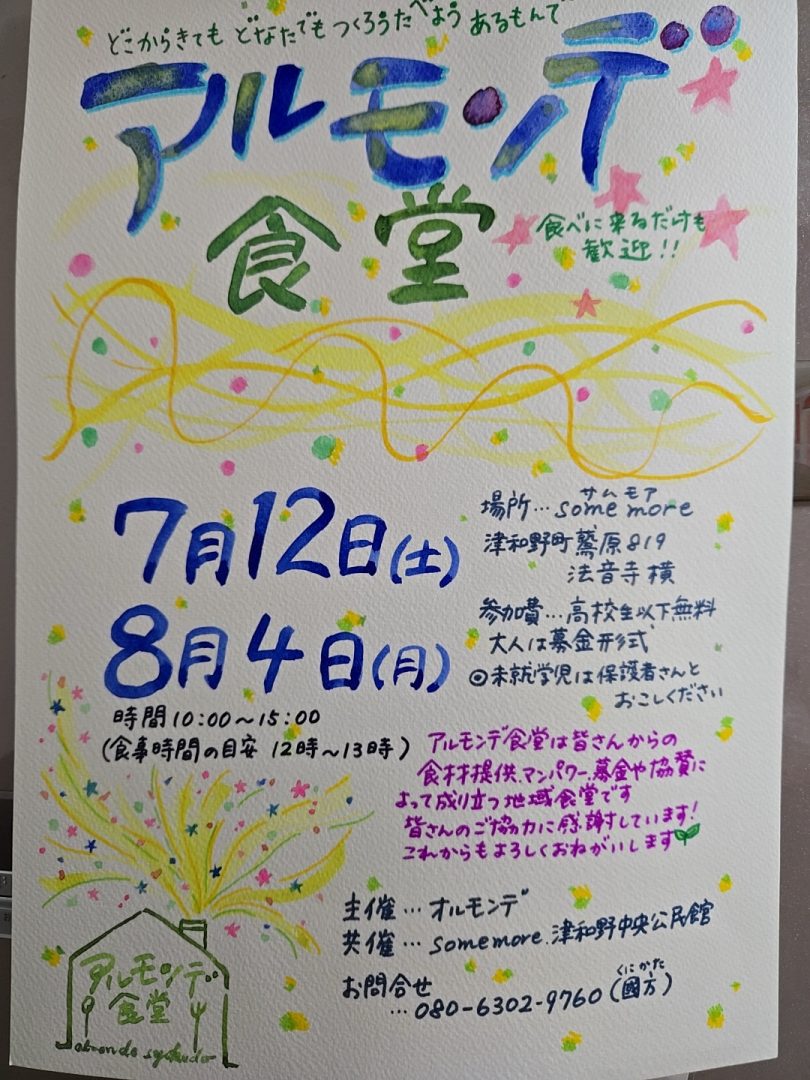 どこからきても どなたでも つくろうたべよう あるもんで
アルモンデ
食堂
食べに来るだけも
歓迎!!
7月12日(土)
8月4日(月)
時間10:00〜15:00
(食事時間の目安 12時〜13時)
サムモア
場所…some more
津和野町鷲原819
法音寺横
参加費…高校生以下無料
大人は募金形式
◎未就学児は保護者さんと
おこしください
アルモンデ食堂は皆さんからの
食材提供、マンパワー、募金や協賛に
よって成り立つ地域食堂です
皆さんのご協力に感謝しています!
これからもよろしくおねがいします
主催…オルモンデ
共催…somemore、津和野中央公民館
お問合せ
くにかた
…080-6302-9760(國方)
アルモンデ
食堂